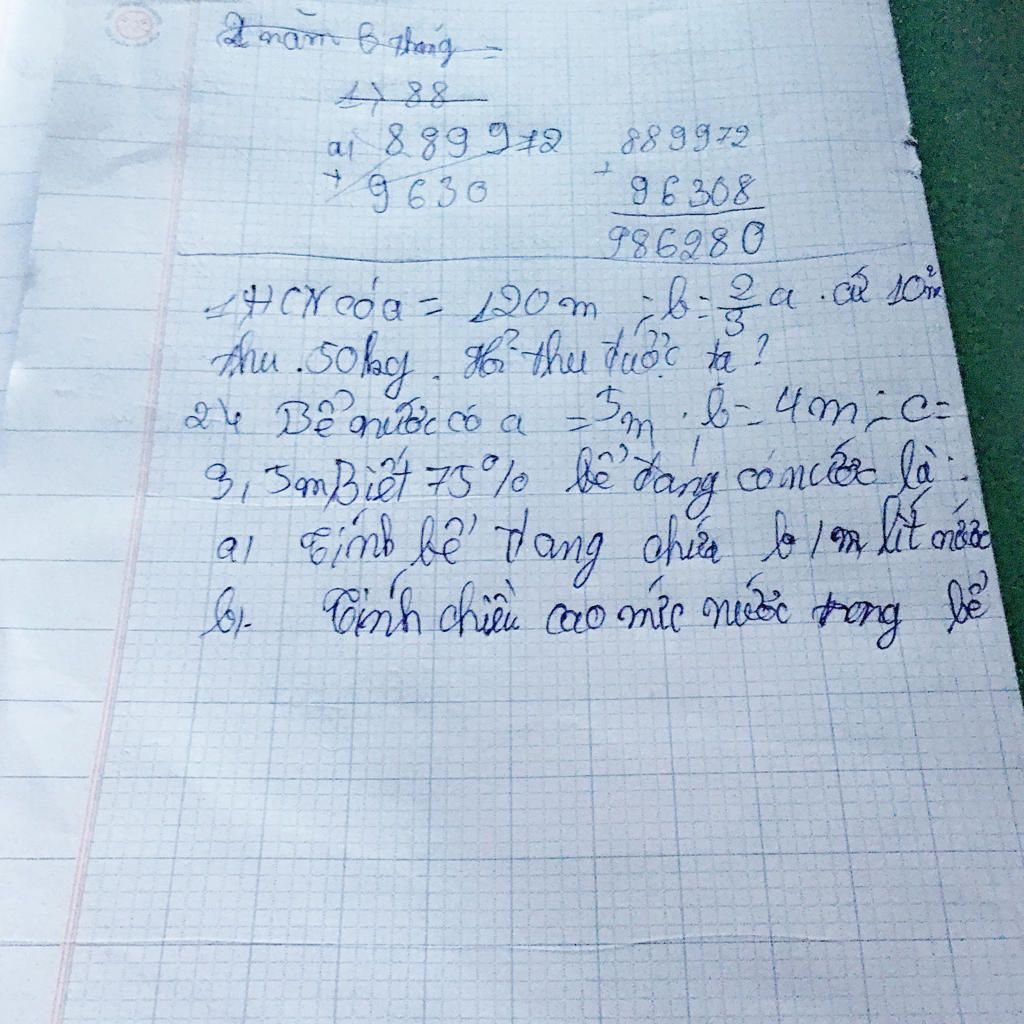 2 năm 6 tháng =
1) 88
a) 889972
+ 9630
889972
+ 96308
986280
1) HCN có a = 120m ; b = 2/3 a. cứ 10m²
thu 50kg. Hỏi thu được tạ?
2) Bể nước có a = 5m ; b = 4m ; c =
3,5m Biết 75% bể đang có nước là:
a) Tính bể đang chứa lít nước
b) Tính chiều cao mức nước trong bể